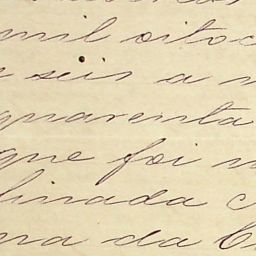 mil oitoc
e seis a
quarenta
que foi
finada
na da